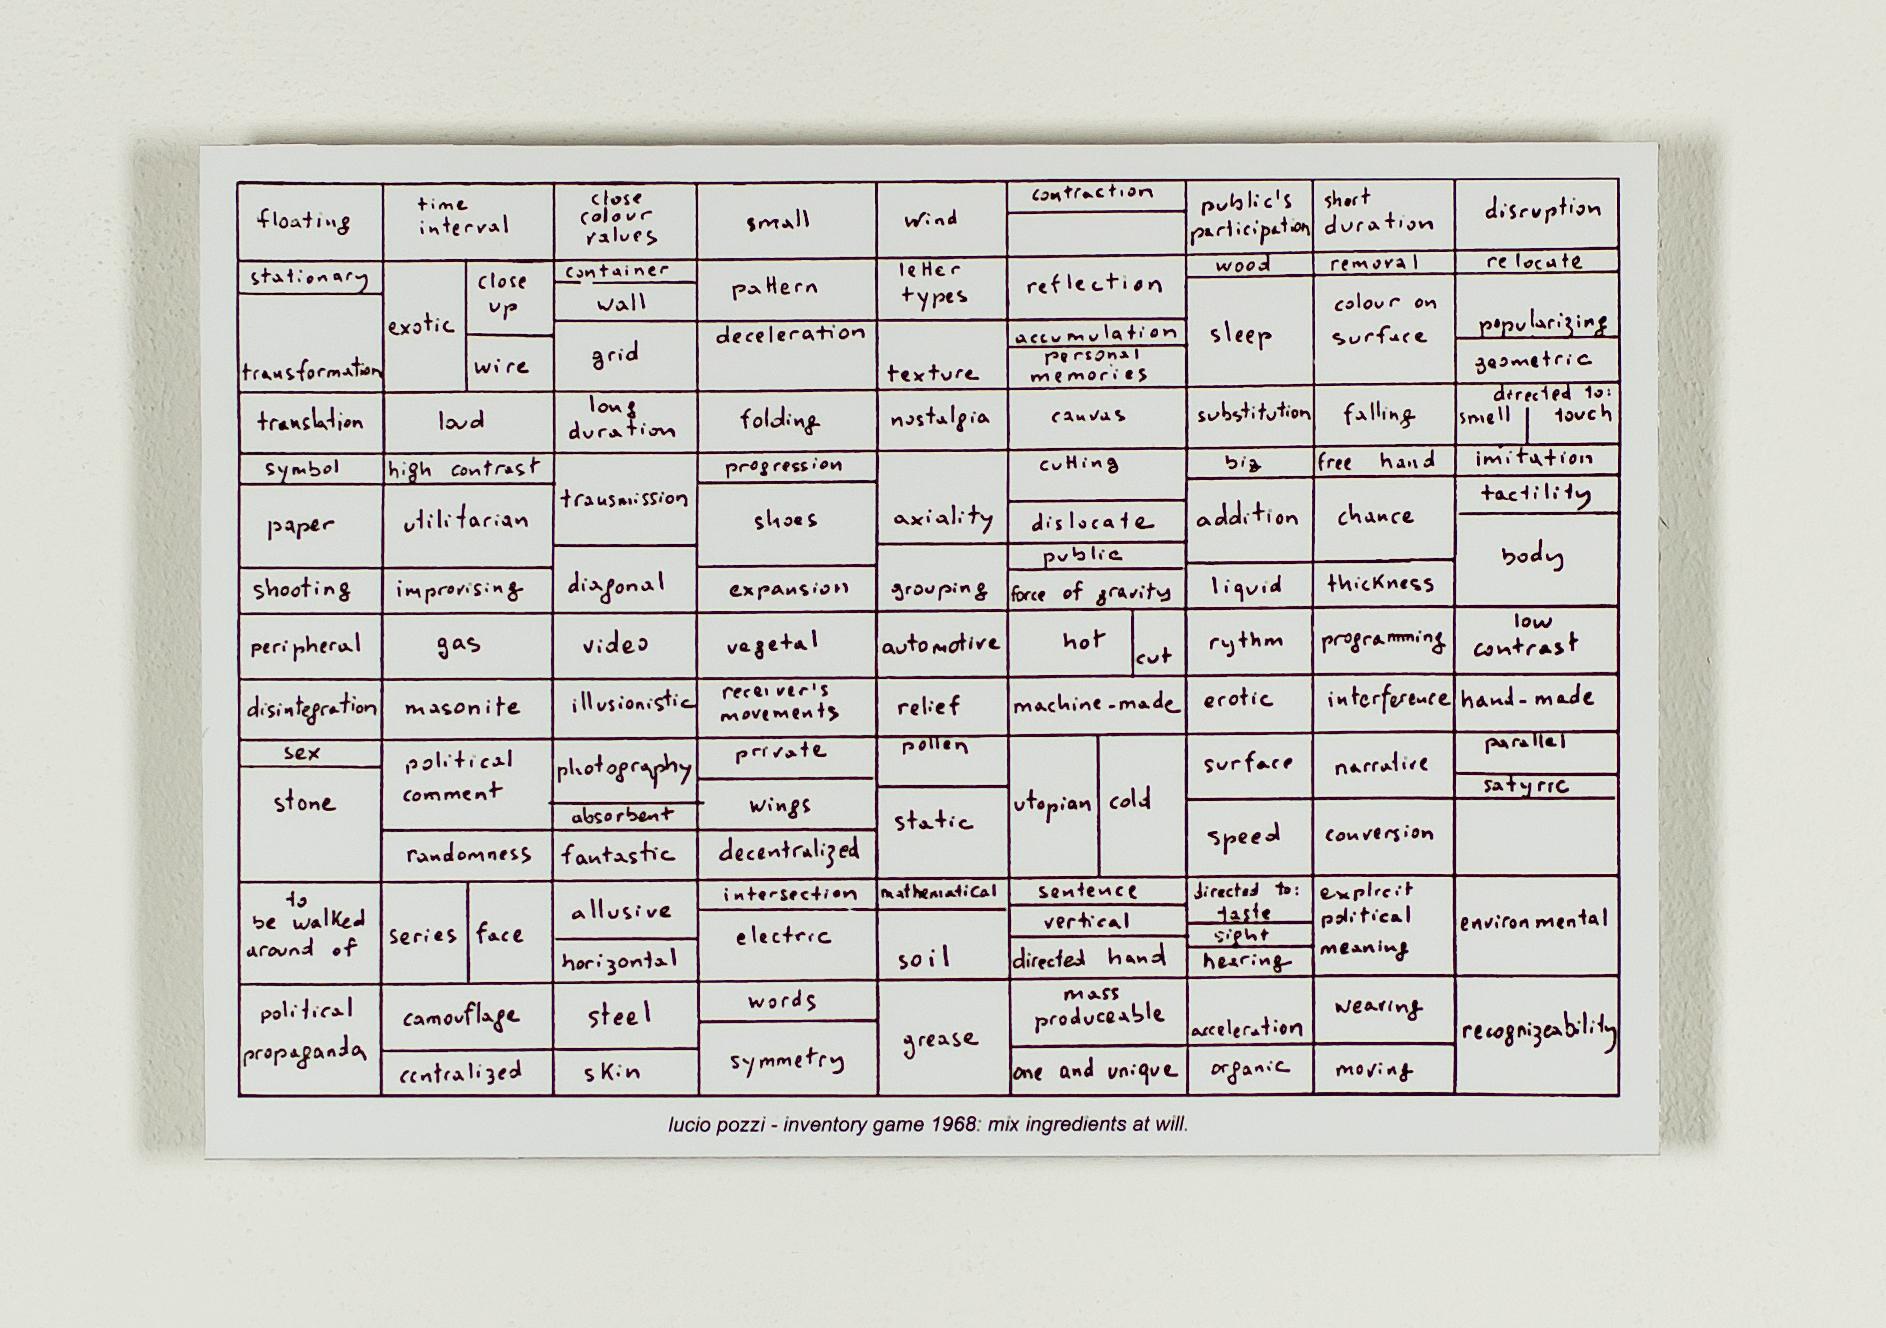 floating
time
interval
close
colour
values
small
wind
contraction
public's
participation
short
duration
disruption
stationary
transformation
exotic
close
up
wire
container
wall
grid
pattern
deceleration
letter
types
texture
reflection
accumulation
personal
memories
wood
sleep
removal
colour on
surface
relocate
popularizing
geometric
translation
loud
long
duration
folding
nostalgia
canvas
substitution
falling
directed to:
smell
touch
symbol
paper
shooting
high contrast
utilitarian
improvising
transmission
diagonal
progression
shoes
expansion
axiality
grouping
cutting
dislocate
public
force of gravity
big
addition
liquid
free hand
chance
thickness
imitation
tactility
body
peripheral
gas
video
vegetal
automotive
hot
cut
rythm
programming
low
contrast
disintegration
masonite
illusionistic
receiver's
movements
relief
machine-made
erotic
interference
hand-made
sex
stone
political
comment
randomness
photography
absorbent
fantastic
private
wings
decentralized
pollen
static
utopian
cold
surface
speed
narrative
conversion
parallel
satyric
to
be walked
around of
series
face
allusive
horizontal
intersection
electric
mathematical
soil
sentence
vertical
directed hand
directed to:
taste
sight
hearing
explicit
political
meaning
environmental
political
propaganda
camouflage
centralized
steel
skin
words
symmetry
grease
mass
produceable
one and unique
acceleration
organic
wearing
moving
recognizeability
lucio pozzi - inventory game 1968: mix ingredients at will.